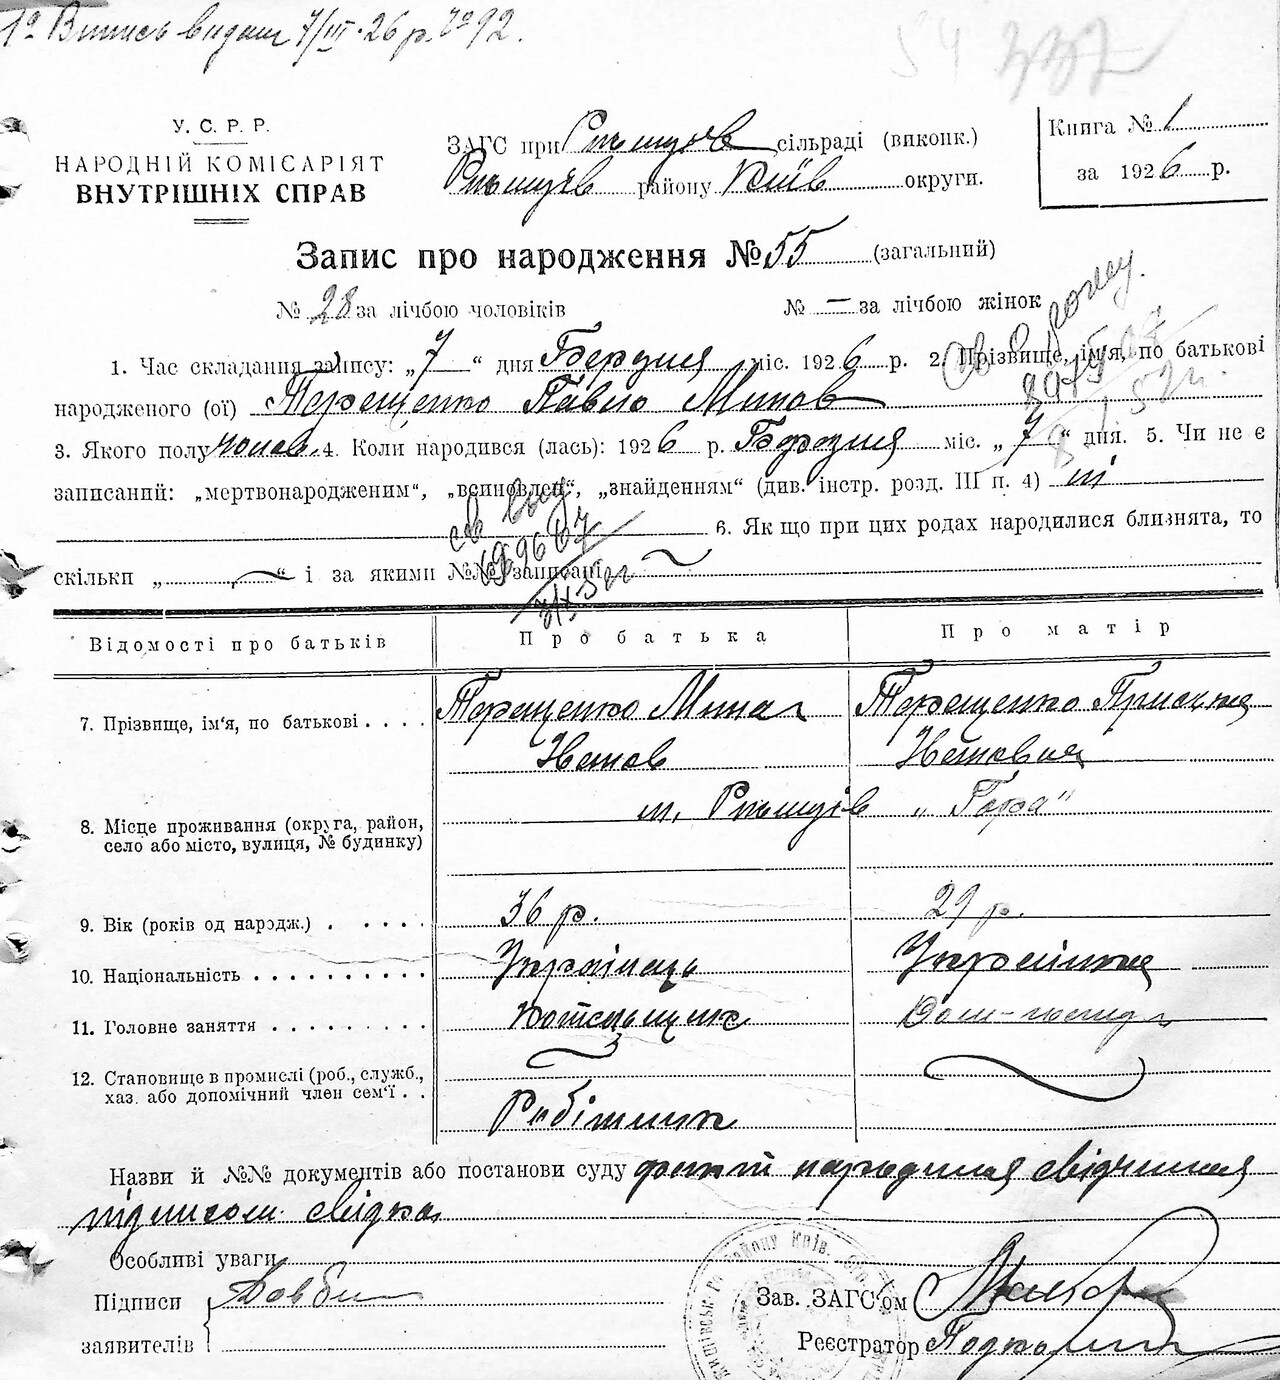 1º Випись видан 7/III-26 р. № 92.
54 337
У. С. Р. Р.
НАРОДНІЙ КОМІСАРІЯТ
ВНУТРІШНІХ СПРАВ
ЗАГС при Ржищів сільраді (виконк.)
Ржищів району Київ округи.
Книга № 1
за 1926 р.
Запис про народження № 55 (загальний)
№ 28 за лічбою чоловіків № — за лічбою жінок
1. Час складання запису: „7“ дня Березня міс. 1926 р. 2. Прізвище, ім'я, по батькові
народженого (ої) Терещенко Павло Минов
3. Якого полу чолов. 4. Коли народився (лась): 1926 р. Березня міс. „7“ дня. 5. Чи не є
записаний: „мертвонародженим“, „всиновлен“, „знайденням“ (див. інстр. розд. III п. 4) ні
6. Як що при цих родах народилися близнята, то
скільки „ “ і за якими №№ записані
Відомості про батьків Про батька Про матір
7. Прізвище, ім'я, по батькові . . . . Терещенко Мина Терещенко Приська
Ізотов
8. Місце проживання (округа, район,
село або місто, вулиця, № будинку)
м. Ржищів „Гора“
9. Вік (років од народж.) . . . . . 36 р. 29 р.
10. Національність . . . . . . . . . Українець Українка
11. Головне заняття . . . . . . . . Котельщик
12. Становище в промислі (роб., служб.,
хаз. або допомічний член сем'ї . .
Робітник
Назви й №№ документів або постанови суду факт народження свідчиння
підписом свідка
Особливі уваги
Підписи Довбиш
заявителів
Зав. ЗАГС'ом
Реєстратор